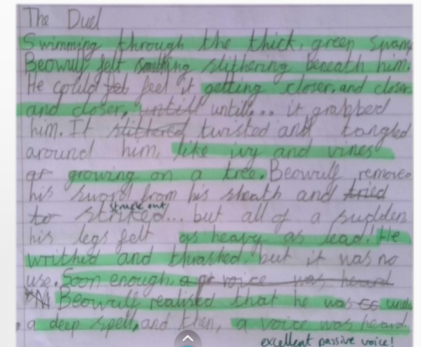 The Duel
Swimming through the thick, green swam
Beowulf felt something slithering beneath him.
He could feel it getting closer, and closer
and closer, untill untill... it grabbed
him. It slithered twisted and tangled
around him, like ivy and vines
growing on a tree. Beowulf remove
his sword from his sheath and tried
to striked... but all of a sudden
struck out
his legs felt as heavy as lead! He
writhed and thrashed, but it was no
use. Soon enough, a voice was heard
Beowulf realised that he was unde
a deep spell, and then, a voice was heard
excellent passive voice!